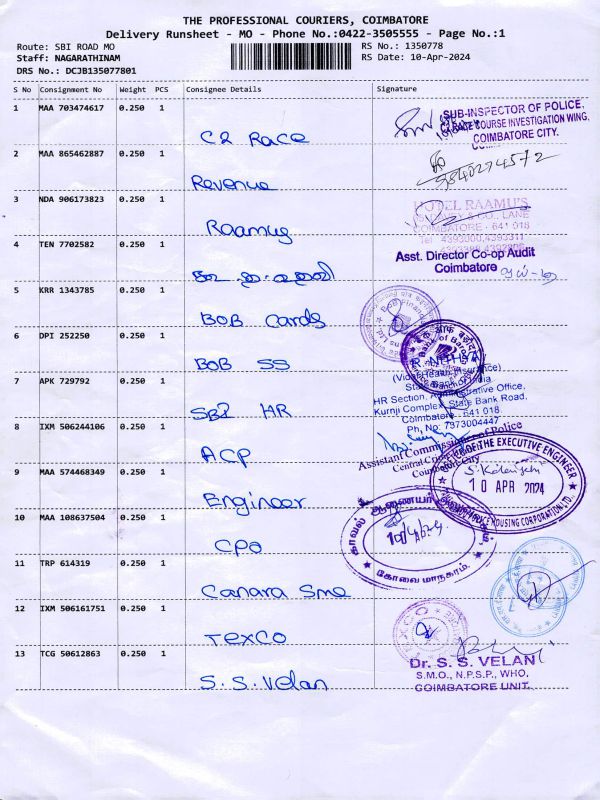 THE PROFESSIONAL COURIERS, COIMBATORE
Delivery Runsheet - MO - Phone No.:0422-3505555 - Page No.:1
Route: SBI ROAD MO RS No.: 1350778
Staff: NAGARATHINAM RS Date: 10-Apr-2024
DRS No.: DCJB135077801
S No Consignment No Weight PCS Consignee Details Signature
1 MAA 703474617 0.250 1
C2 Race
SUB-INSPECTOR OF POLICE,
COURSE INVESTIGATION WING,
COIMBATORE CITY.
2 MAA 865462887 0.250 1
Revenue
9840274572
3 NDA 906173823 0.250 1
Raamus
HOTEL RAAMU'S
& CO., LANE
COIMBATORE - 641 018
Tel 4393000,4393311
4 TEN 7702582 0.250 1
Asst. Director Co-op Audit
Coimbatore
5 KRR 1343785 0.250 1
BOB Cards
6 DPI 252250 0.250 1
BOB SS
Bank of Baroda
7 APK 729792 0.250 1
SBI HR
R. NITHYA
State Bank of India
HR Section, Administrative Office,
Kurnji Complex, State Bank Road,
Coimbatore - 641 018.
Ph. No: 7373004447
8 IXM 506244106 0.250 1
ACP
Assistant Commissioner of Police
Coimbatore City
9 MAA 574468349 0.250 1
Engineer
OF THE EXECUTIVE ENGINEER
10 APR 2024
HOUSING CORPORATION LTD.
10 MAA 108637504 0.250 1
CPO
காவல் ஆணையர்
10/4/24
கோவை மாநகரம்.
11 TRP 614319 0.250 1
Canara Sme
12 IXM 506161751 0.250 1
TEXCO
TEXCO
13 TCG 50612863 0.250 1
S.S.Velan
Dr. S. S. VELAN
S.M.O., N.P.S.P., WHO.
COIMBATORE UNIT.